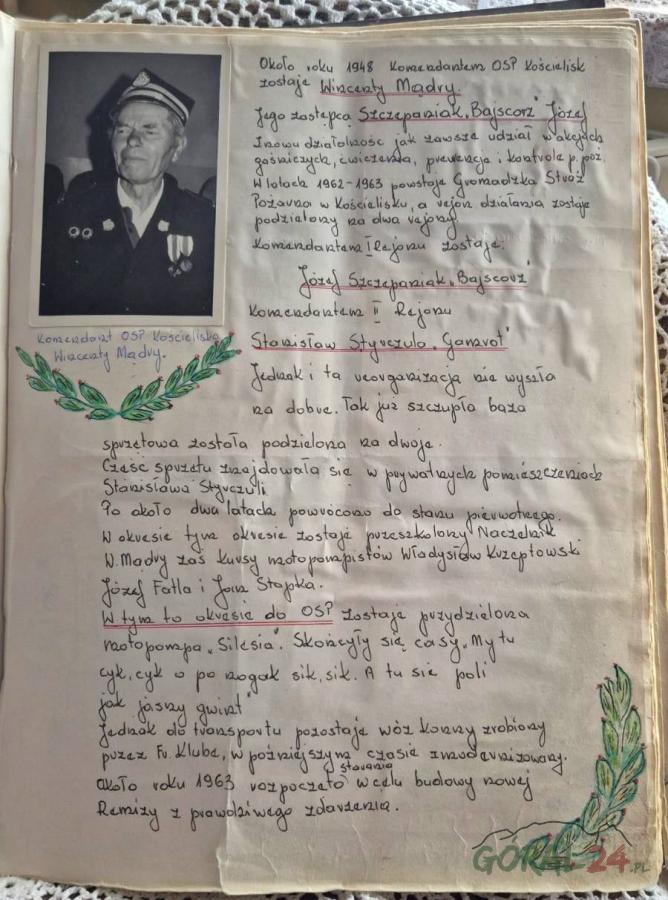 Około roku 1948 Komendantem OSP Kościelisk
zostaje Wincenty Mądry.
Jego zastępcą Szczepaniak „Bajscorz" Józef
Znowu działalność jak zawsze udział w akcjach
gaśniczych, ćwiczenia, prewencja i kontrole p. poż.
W latach 1962-1963 powstaje Gromadzka Straż
Pożarna w Kościelisku, a rejon działania zostaje
podzielony na dwa rejony.
Komendantem I Rejonu zostaje:
Józef Szczepaniak „Bajscorz"
Komendantem II Rejonu
Stanisław Styrczula „Gonzrot"
Jednak i ta reorganizacja nie wyszła
na dobre. Tak już szczupła baza
sprzętowa została podzielona na dwoje.
Cześć sprzętu znajdowała się w prywatnych pomieszczeniach
Stanisława Styrczuli
Po około dwu latach powrócono do stanu pierwotnego.
W okresie tym okresie zostaje przeszkolony Naczelnik
W. Mądry zaś kursy motopompistów Władysław Krzeptowski
Józef Fatla i Jan Stopka.
W tym to okresie do OSP zostaje przydzielona
motopompa „Silesia". Skońcyły się casy „My tu
cyk, cyk o po nogak sik, sik. A tu sie poli
jak jasny gwint"
Jednak do transportu pozostaje wóz konny zrobiony
przez Fr. Klubę, w późniejszym czasie zmodernizowany.
około roku 1963 rozpoczęto starania w celu budowy nowej
Remizy z prawdziwego zdarzenia.
Komendant OSP Kościelisko
Wincenty Mądry.
GÓRAL24.PL